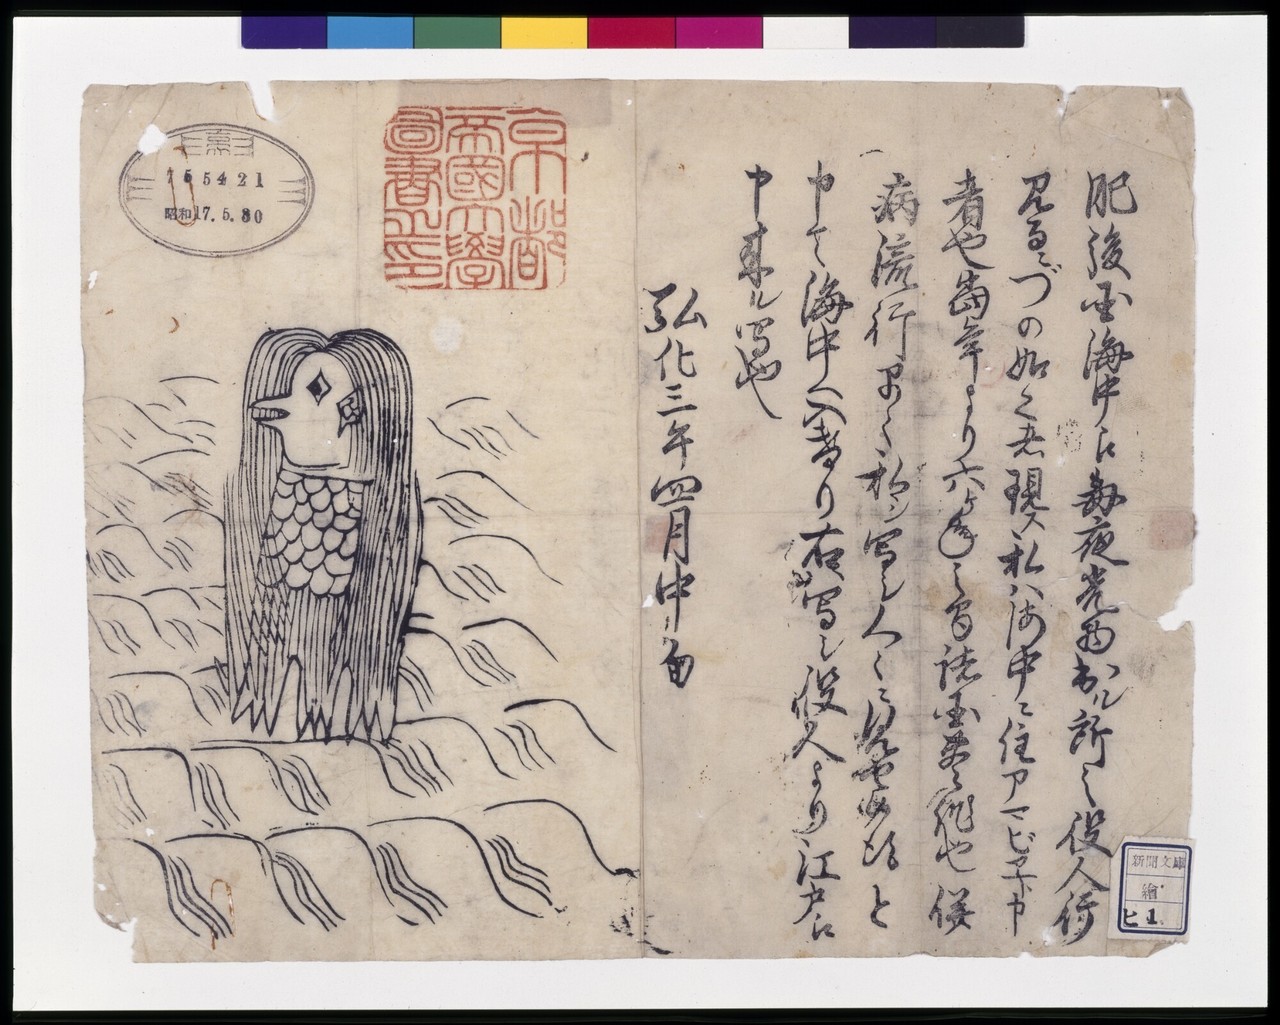 肥後国海中江毎夜光物出ル所之役人行
見るニづの如く者現ス私ハ海中ニ住アマビヱト申
者也當年より六ヶ年之間諸国豊作也併
病流行早々私ヲ写シ人々ニ見せ候得と
申て海中へ入けり右写シ役人より江戸江
申来ル写也
弘化三年四月中旬
京都
帝國大學
圖書之印
昭和17.5.30
新聞文庫
繪
ヒ 1